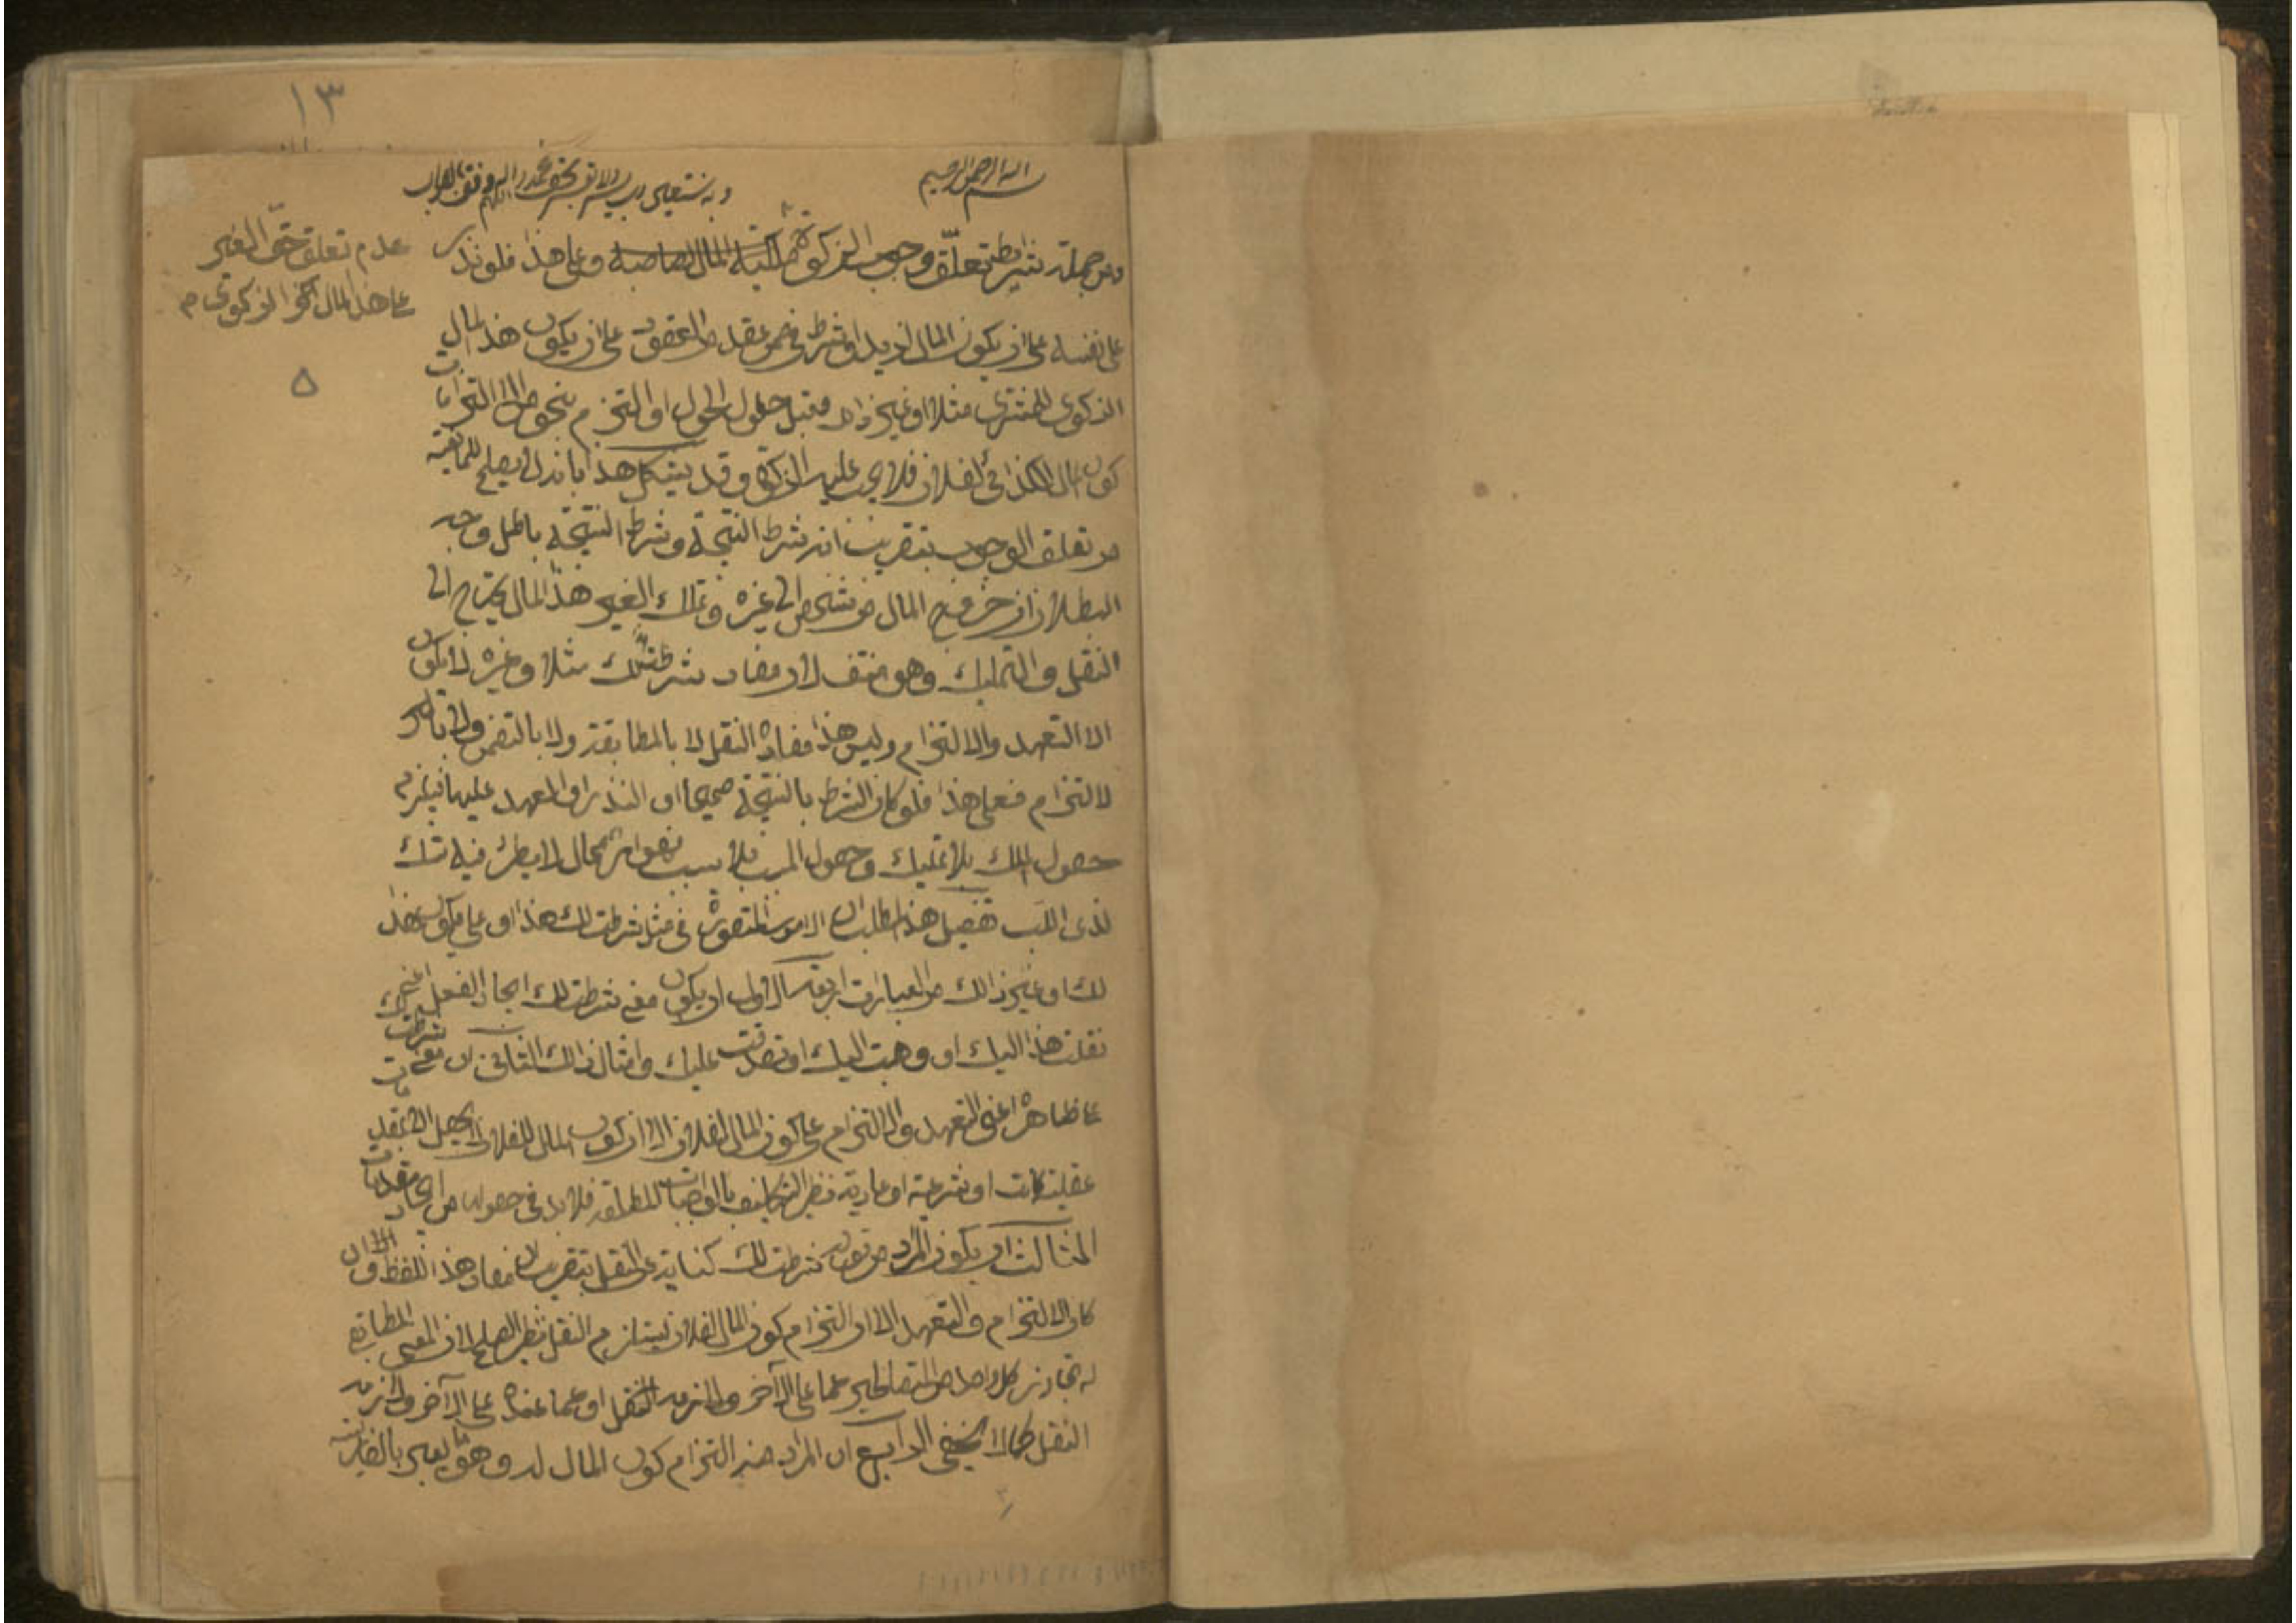 ١٣
بسم الله الرحمن الرحيم
وبه نستعين رب يسر ولا تعسر بحق محمد واله اللهم وفق
ومن جملة شرايط تعلّق وجوب الزكوة وعلى هذا فلو نذر
عدم تعلق حق الغير
على هذا المال الزكوي م
٥
على نفسه على ان يكون المال لزيد او شرط في ضمن عقد من العقود على ان يكون هذا المال
الزكوى للمشترى مثلا او غير ذلك وقبل حلول الحول او التزم بنحو من الالتزامات
كون المال لفلان فلا يجب عليه الزكوة وقد يشكل هذا بانه لا يصلح للمانعية
من تعلق الوجوب بتقريب انه شرط النتيجة وشرط النتيجة باطل وجه
البطلان ان خروج المال من شخص الى غيره وتملك الغير هذا المال يحتاج الى
النقل والتمليك وهو منتف لان مفاد شرطت لك مثلا وغيره لا يكون
الا التعهد والالتزام وليس هذا مفاده النقل لا بالمطابقة ولا بالتضمن ولا
لالتزام فعلى هذا فلو كان الشرط بالنتيجة صحيحا او النذر او العهد عليها فيلزم
حصول الملك بلا تمليك وحصول المسبب بلا سبب فهو امر محال لا يطرئ فيه شك
لذى اللب تفصيل هذا المطلب ان الامور المتصورة في مثل شرطت لك هذا او على ان يكون هذا
لك او غير ذالك من العبارات اربعة الاول ان يكون معنى شرطت لك ايجاد الفعل اعنى
نقلت هذا اليك او وهبت اليك او تصدقت عليك وامثال ذالك الثانى ان معنى شرطت
على ظاهره اعنى التعهد والالتزام على كون المال لفلان الا ان كون المال للفلان لا يحصل الا بمقدمات
عقلية كانت او شرعية او عادية نظير التكليف بالواجبات المطلقة فلا بد في حصوله من ايجاد مقدمات
الثالث ان يكون المراد من قوله شرطت لك كناية عن النقل بتقريب ان مفاد هذا اللفظ وان
كان الالتزام والتعهد الا ان التزام كون المال لفلان يستلزم النقل نظير الصلح لان المعنى المطابقى
له تجاوز كل واحد من المتصالحين عما على الآخر ولازمه النقل او عما عنده على الآخر ولازمه
النقل كما لا يخفى الرابع ان المراد منه التزام كون المال له وهو يعبر